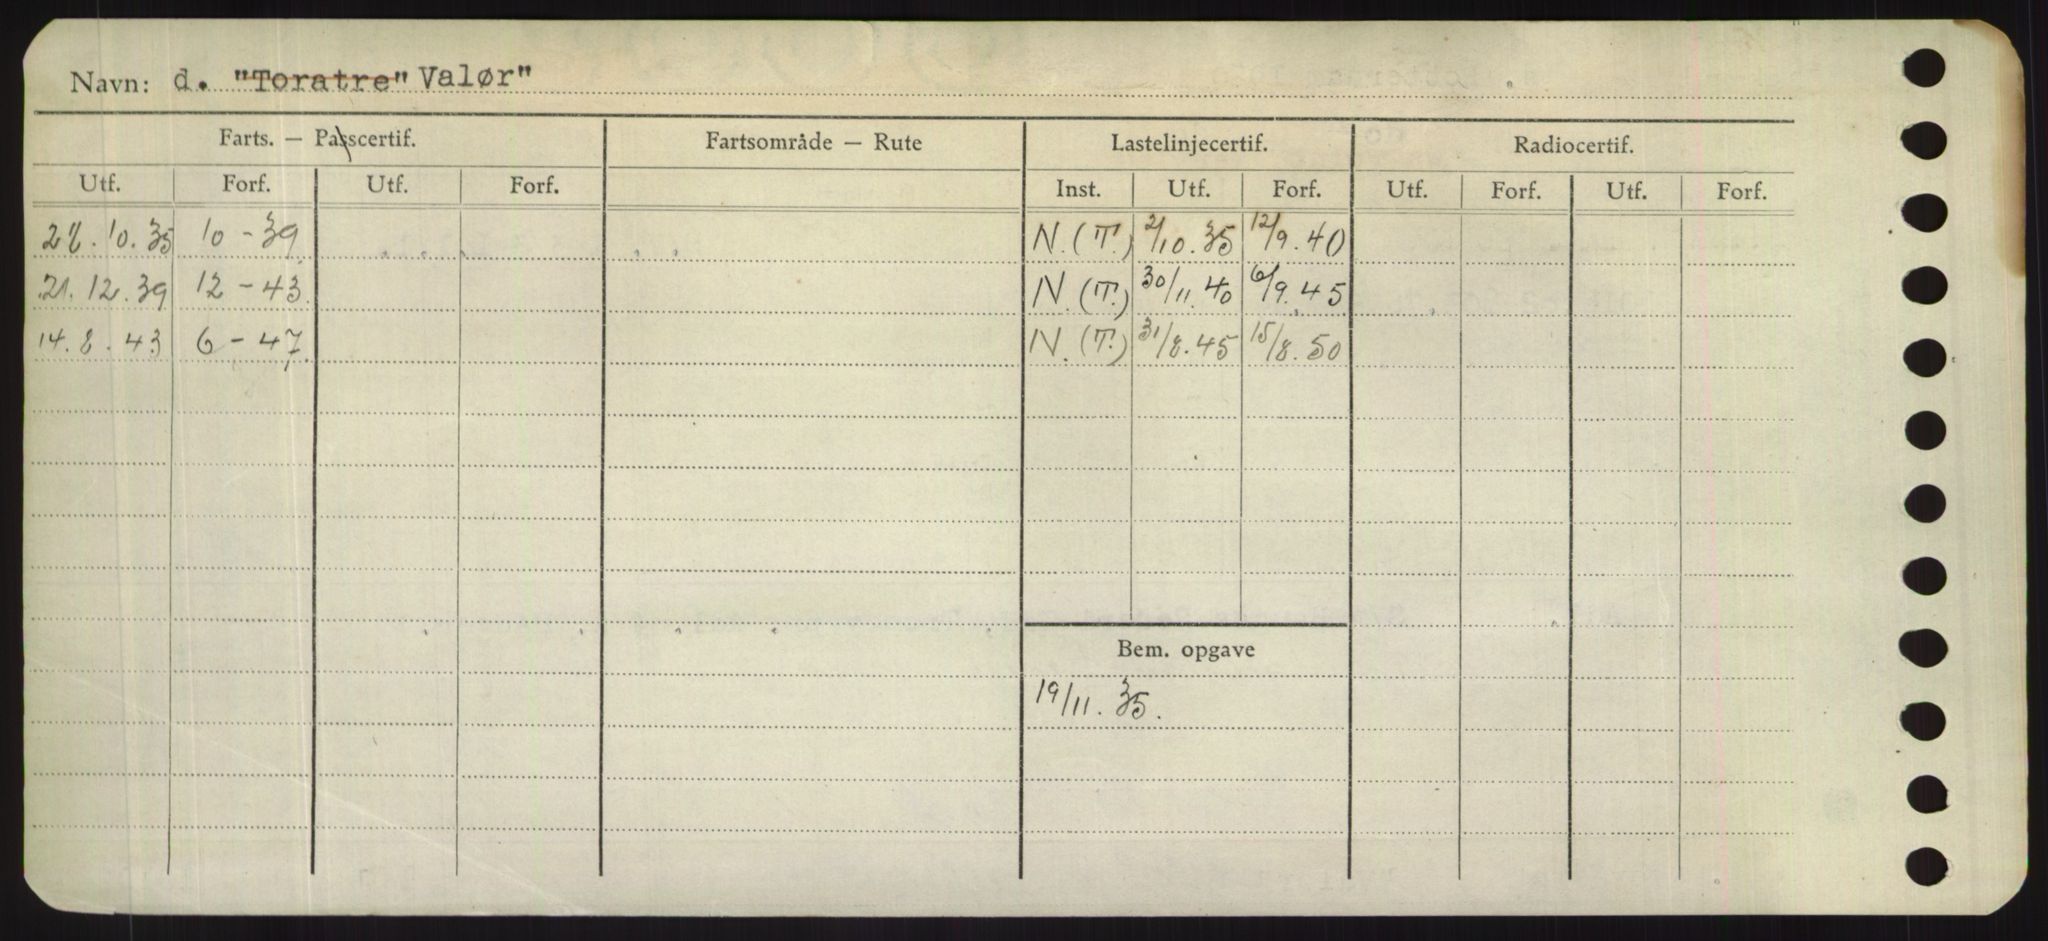 Navn: d. "Toratre" Valør"
Farts. — Passcertif. Fartsområde — Rute Lastelinjecertif. Radiocertif.
Utf. Forf. Utf. Forf. Inst. Utf. Forf. Utf. Forf. Utf. Forf.
28.10.35 10-39 N.(T.) 2/10.35 12/9.40
21.12.39 12-43 N.(T.) 30/11.40 6/9.45
14.8.43 6-47 N.(T.) 31/8.45 15/8.50
Bem. opgave
19/11.35.